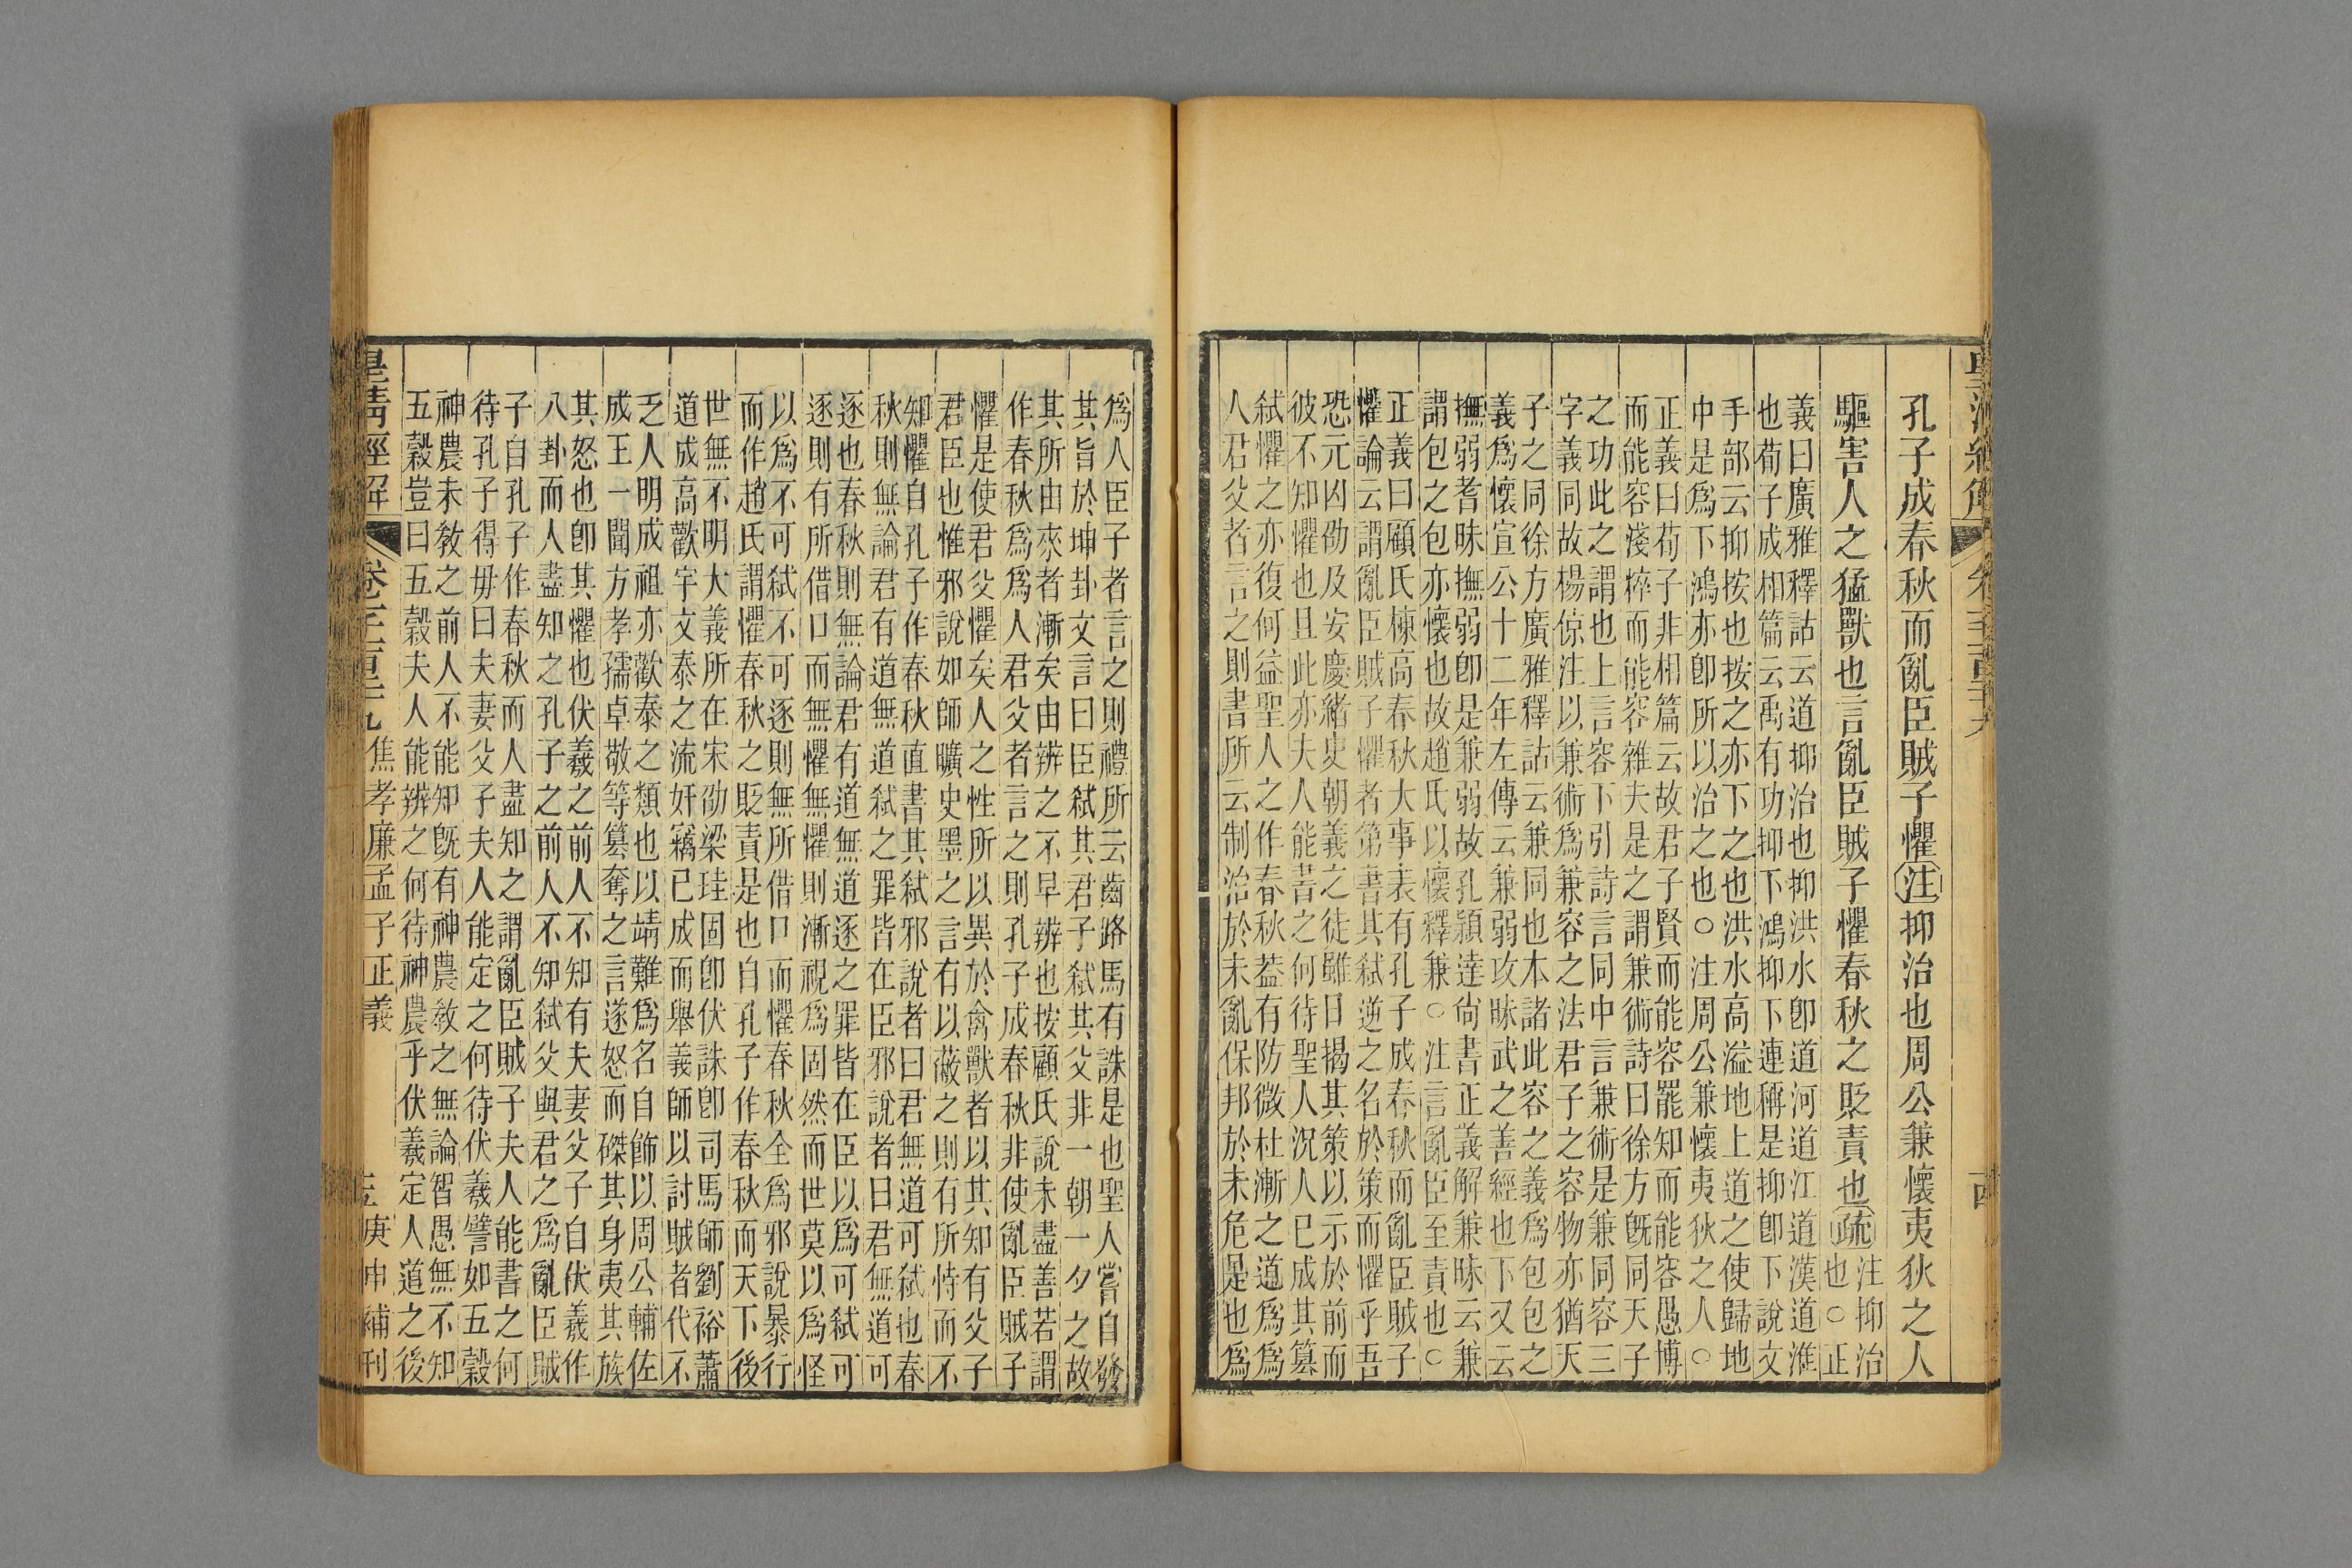 孔子成春秋而亂臣賊子懼注抑治也周公兼懷夷狄之人
驅害人之猛獸也言亂臣賊子懼春秋之貶責也疏注抑治
也○正
義曰廣雅釋詁云道抑治也抑洪水卽道河道江道漢道淮
也荀子成相篇云禹有功抑下鴻抑下連稱是抑卽下說文
手部云抑按也按之亦下之也洪水高溢地上道之使歸地
中是爲下鴻亦卽所以治之也○注周公兼懷夷狄之人○
正義曰荀子非相篇云故君子賢而能容罷知而能容愚博
而能容淺粹而能容雜夫是之謂兼術詩曰徐方旣同天子
之功此之謂也上言容下引詩言同中言兼術是兼同容三
字義同故楊倞注以兼術爲兼容之法君子之容物亦猶天
子之同徐方廣雅釋詁云兼同也本諸此容之義爲包包之
義爲懷宣公十二年左傳云兼弱攻昧武之善經也下又云
撫弱耆昧撫弱卽是兼弱故孔穎達尙書正義解兼昧云兼
謂包之包亦懷也故趙氏以懷釋兼○注言亂臣至責也○
正義曰顧氏棟高春秋大事表有孔子成春秋而亂臣賊子
懼論云謂亂臣賊子懼者第書其弑逆之名於策而懼乎吾
恐元凶劭及安慶緒史朝義之徒雖日揭其策以示於前而
彼不知懼也且此亦夫人能著之何待聖人況人已成其篡
弑懼之亦復何益聖人之作春秋蓋有防微杜漸之道爲爲
人君父者言之則書所云制治於未亂保邦於未危是也爲
爲人臣子者言之則禮所云齒路馬有誅是也聖人嘗自發
其旨於坤卦文言曰臣弑其君子弑其父非一朝一夕之故
其所由來者漸矣由辨之不早辨也按顧氏說未盡善若謂
作春秋爲爲人君父者言之則孔子成春秋非使亂臣賊子
懼是使君父懼矣人之性所以異於禽獸者以其知有父子
君臣也惟邪說如師曠史墨之言有以蔽之則有所恃而不
知懼自孔子作春秋直書其弑邪說者曰君無道可弑也春
秋則無論君有道無道弑之罪皆在臣邪說者曰君無道可
逐也春秋則無論君有道無道逐之罪皆在臣以爲可弑可
逐則有所借口而無懼無懼則漸視爲固然而世莫以爲怪
以爲不可弑不可逐則無所借口而懼春秋全爲邪說暴行
而作趙氏謂懼春秋之貶責是也自孔子作春秋而天下後
世無不明大義所在宋劭梁珪固卽伏誅卽司馬師劉裕蕭
道成高歡宇文泰之流奸竊已成而舉義師以討賊者代不
乏人明成祖亦歡泰之類也以靖難爲名自飾以周公輔佐
成王一聞方孝孺卓敬等篡奪之言遂怒而磔其身夷其族
其怒也卽其懼也伏羲之前人不知有夫妻父子自伏羲作
八卦而人盡知之孔子之前人不知弑父與君之爲亂臣賊
子自孔子作春秋而人盡知之謂亂臣賊子夫人能書之何
待孔子得毋曰夫妻父子夫人能定之何待伏羲譬如五穀
神農未敎之前人不能知旣有神農敎之無論智愚無不知
五穀豈曰五穀夫人能辨之何待神農乎伏羲定人道之後
皇淸經解 焦孝廉孟子正義 庚申補刊